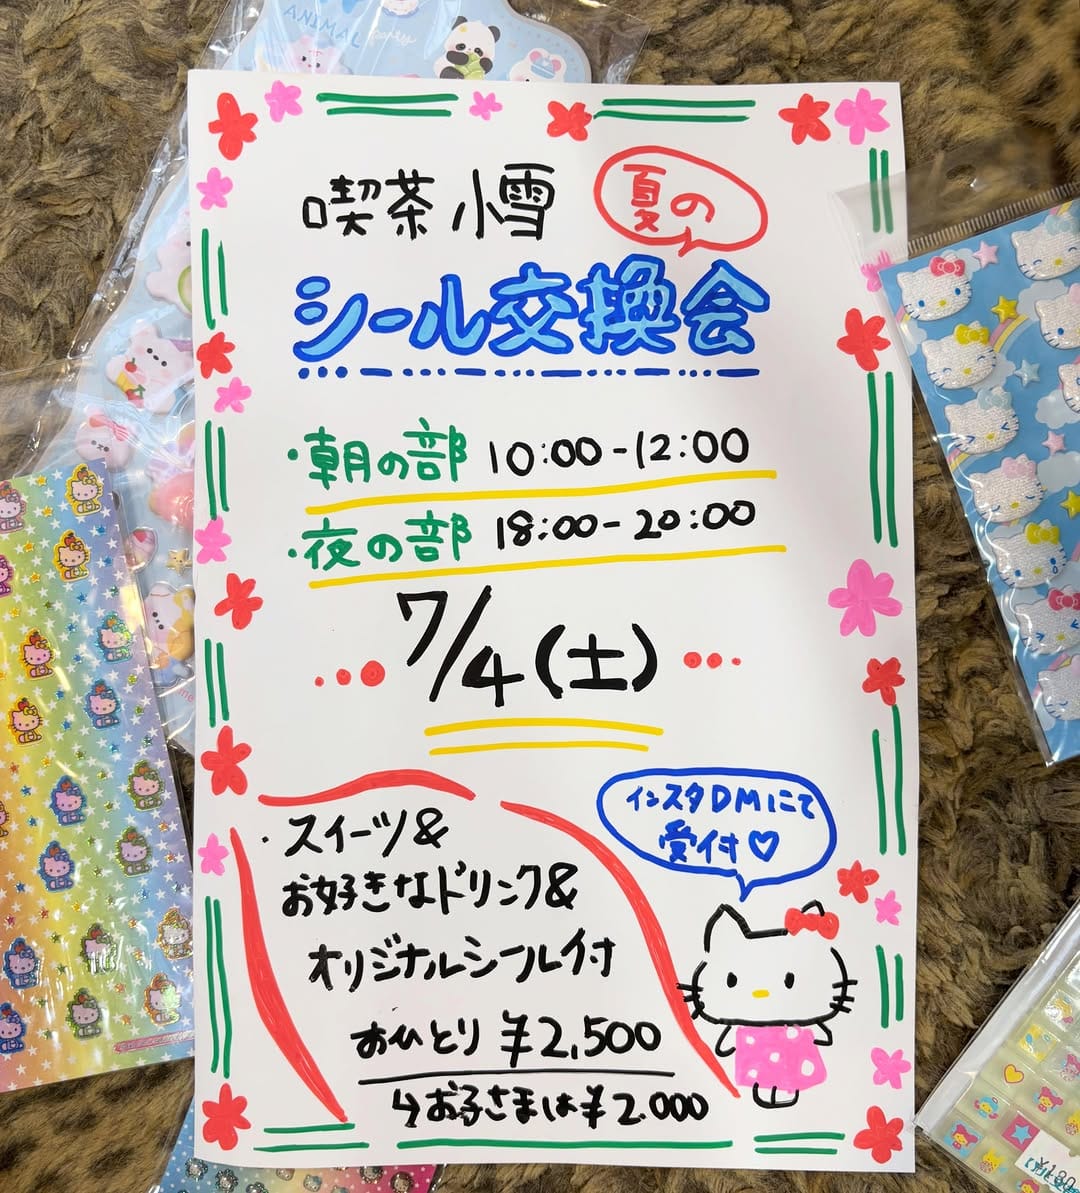 ANIMAL
party
喫茶 小雪
夏の
シール交換会
・朝の部 10:00-12:00
・夜の部 18:00-20:00
7/4(土)
インスタDMにて
受付♡
・スイーツ&
お好きなドリンク&
オリジナルシール付
おひとり ¥2,500
↳お子さまは¥2.000